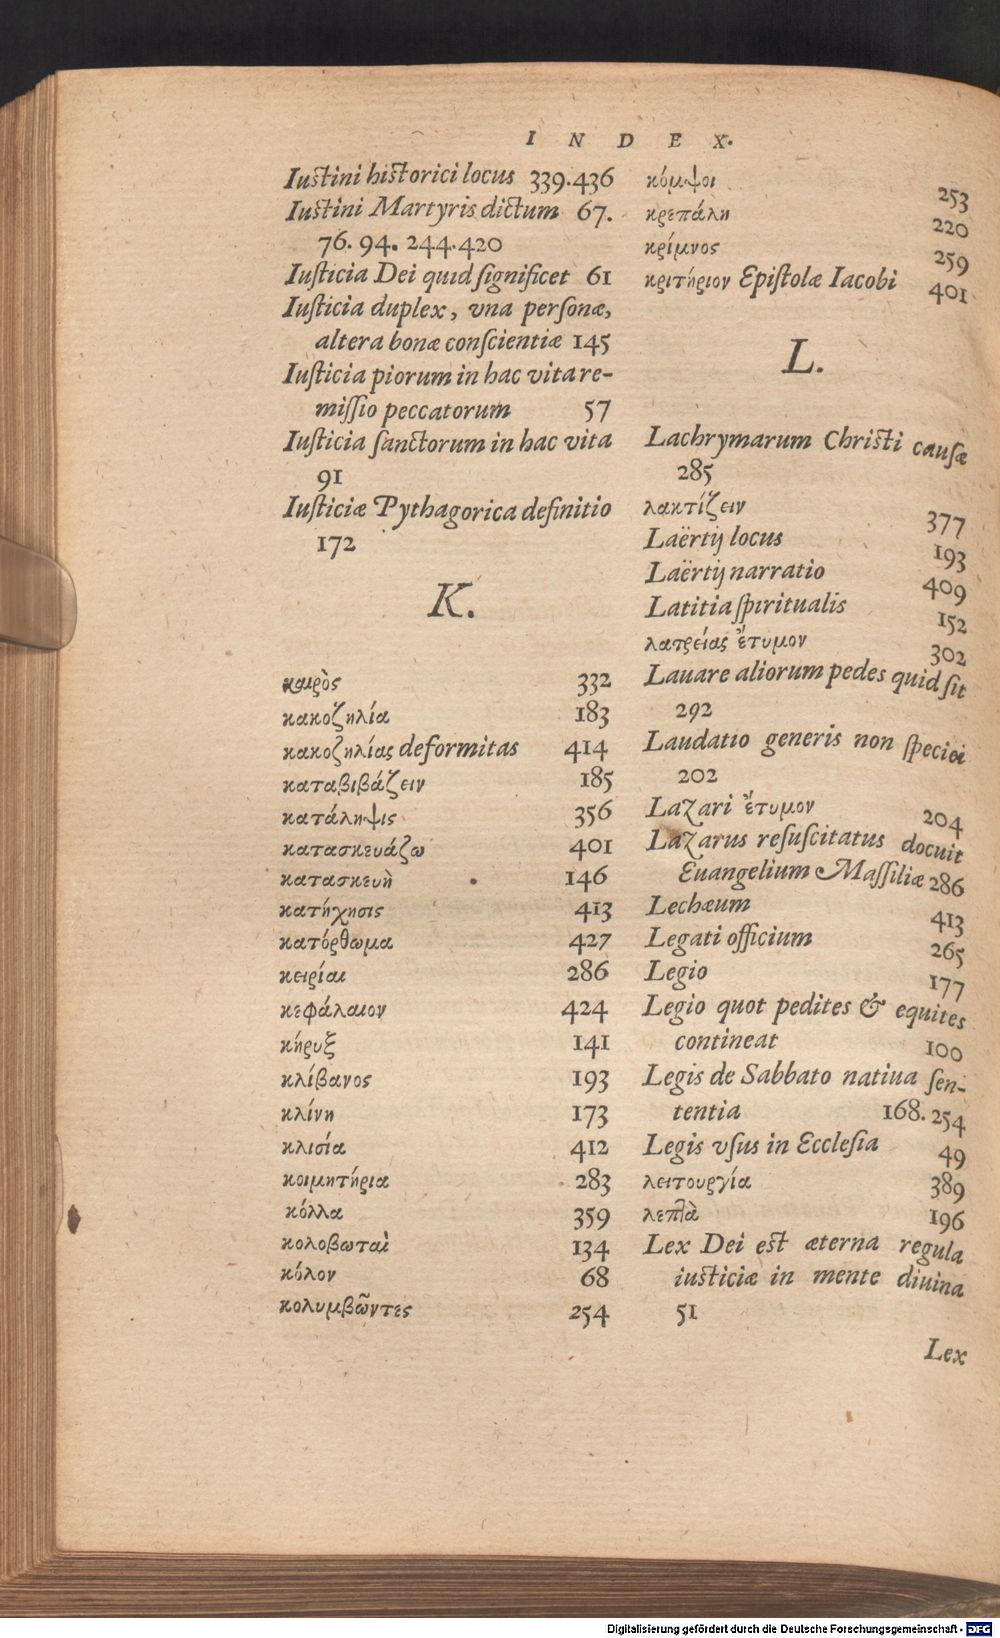 INDEX.
Iustini historici locus 339.436
Iustini Martyris dictum 67.
76. 94. 244.420
Iusticia Dei quid significet 61
Iusticia duplex, vna personæ,
altera bonæ conscientiæ 145
Iusticia piorum in hac vita re-
missio peccatorum 57
Iusticia sanctorum in hac vita
91
Iusticiæ Pythagorica definitio
172
K.
καιρὸς 332
κακοζηλία 183
κακοζηλίας deformitas 414
καταβιβάζειν 185
κατάληψις 356
κατασκευάζω 401
κατασκευὴ 146
κατήχησις 413
κατόρθωμα 427
κειρίαι 286
κεφάλαιον 424
κήρυξ 141
κλίβανος 193
κλίνη 173
κλισία 412
κοιμητήρια 283
κόλλα 359
κολοβωταὶ 134
κόλον 68
κολυμβῶντες 254
κόμψοι 253
κρεπάλη 220
κρίμνος 259
κριτήριον Epistolæ Iacobi 401
L.
Lachrymarum Christi causæ
285
λακτίζειν 377
Laërtij locus 193
Laërtij narratio 409
Latitia spiritualis 152
λατρείας ἔτυμον 302
Lauare aliorum pedes quid sit
292
Laudatio generis non speciei
202
Lazari ἔτυμον 204
Lazarus resuscitatus docuit
Euangelium Massiliæ 286
Lechæum 413
Legati officium 265
Legio 177
Legio quot pedites & equites
contineat 100
Legis de Sabbato natiua sen-
tentia 168. 254
Legis vsus in Ecclesia 49
λειτουργία 389
λεπτὰ 196
Lex Dei est æterna regula
iusticiæ in mente diuina
51
Lex
Digitalisierung gefördert durch die Deutsche Forschungsgemeinschaft - DFG